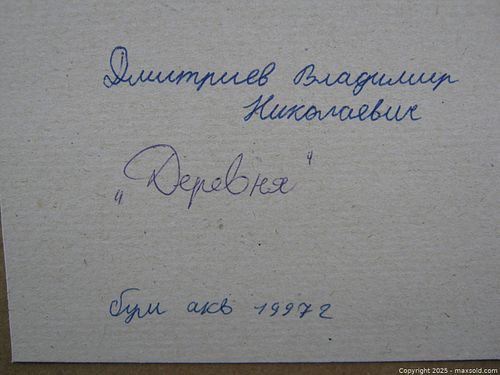 Дмитриев Владимир
Николаевич
„Деревня"
бум акв 1997г
Copyright © 2025 - maxsold.com